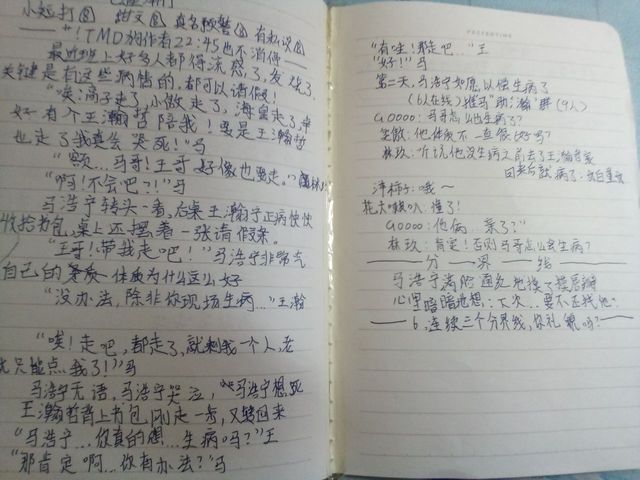 小短打 甜文 真名预警 有私设
——*!TMD的作者22:45也不消停——
最近班上好多人都得流感了,发烧了,
关键是有这些病情的,都可以请假!
"唉,高子走了,小微走了,海皇走了,幸
好有个王瀚哲陪我!要是王瀚哲
也走了我真会哭死!"马
"额,马哥!王哥好像也要走。"
"啊!不会吧?!"马
马浩宁转头一看,后桌王瀚宁正病怏怏
收拾书包,桌上还摆着一张请假条。
"王哥!带我走吧!"马浩宁非常气
自己的体质为什么这么好
"没办法,除非你现场生病…"王瀚
"唉!走吧,都走了,就剩我一个人,老
就只能点我了!"马
马浩宁无语,马浩宁哭泣,马浩宁想死
王瀚哲背上书包,刚走一步,又转回来
"马浩宁…你真的想…生病吗?"王
"那肯定啊…你有办法?"马
"有哇!那走吧…"王
"好!"马
第二天,马浩宁如愿以偿生病了
(6人在线)群(9人)
GOOOO:马哥怎么也生病了?
他体质不一直很好吗?
林玖:听说他没生病之前去了王瀚哲家
回来后就病了,
洋柿子:哦~
花木 懂了!
GOOOO:他俩…亲了?
林玖:肯定!否则马哥怎么会生病?
——分——界——线——
马浩宁满脸通红地摸了摸唇瓣
心里暗暗地想:下次…要不还找他~
——6,连续三个分界线,你礼貌吗?——